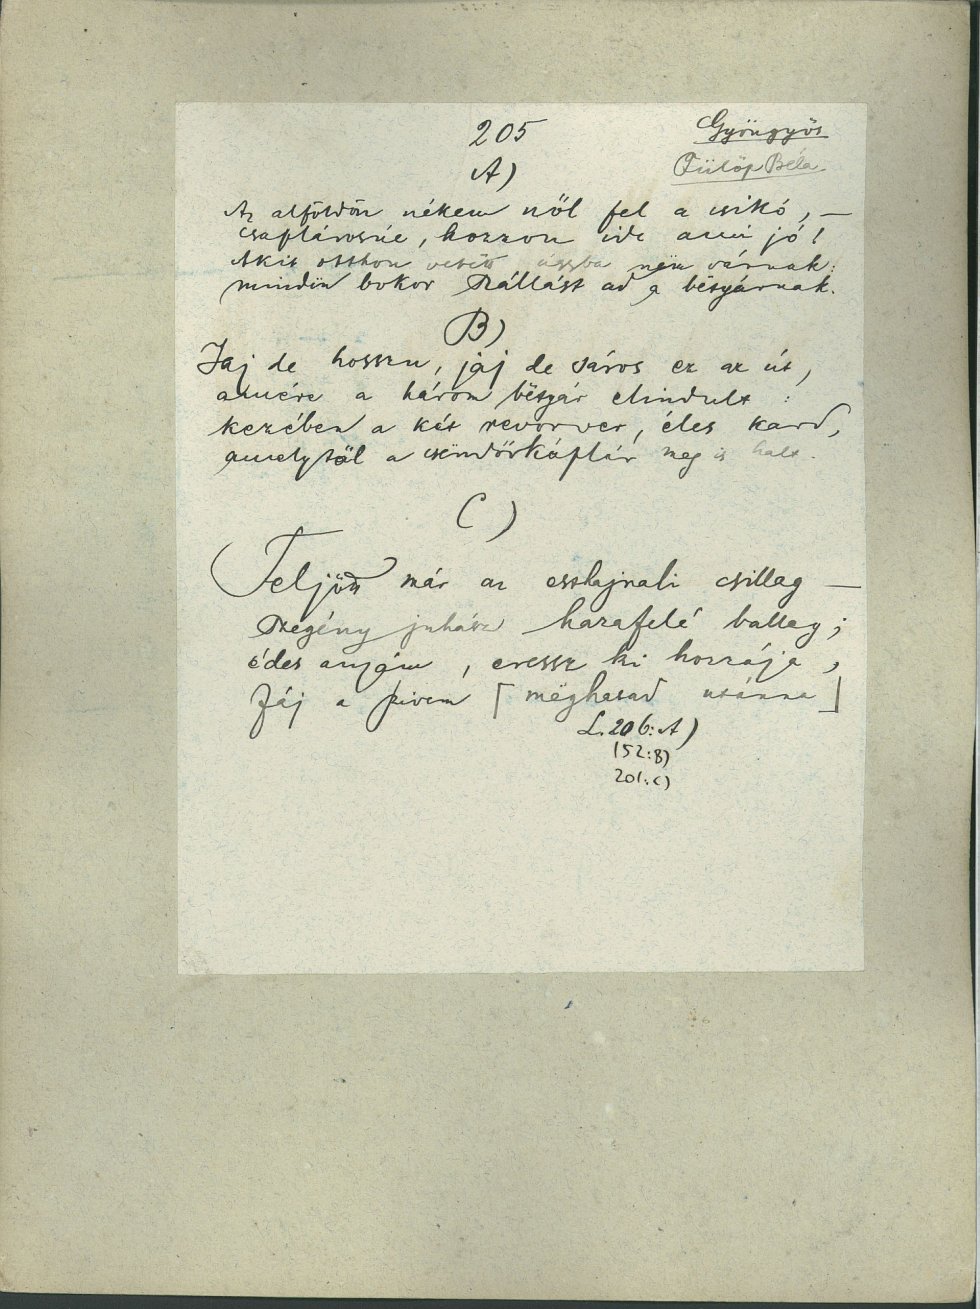 205
Gyöngyös
Fülöp Béla
A)
Az alfődön nékem nől fel a csikó, —
csaplárosné, hozzon ide ami jó!
Akit otthon vetött ágyba nëm várnak:
mindön bokor szállást ad a bëtyárnak.
B)
Jaj de hosszu, jaj de sáros ez az út,
amére a három bëtyár elindult:
kezében a két revorver, éles kard,
amelytől a csëndőrkáplár meg is halt.
C)
Feljött már az esthajnali csillag —
szegény juhász hazafelé ballag;
édes anyám, eressz ki hozzája,
fáj a szivem [mëghasad utánna]
L. 206: A)
152: B)
201: C)